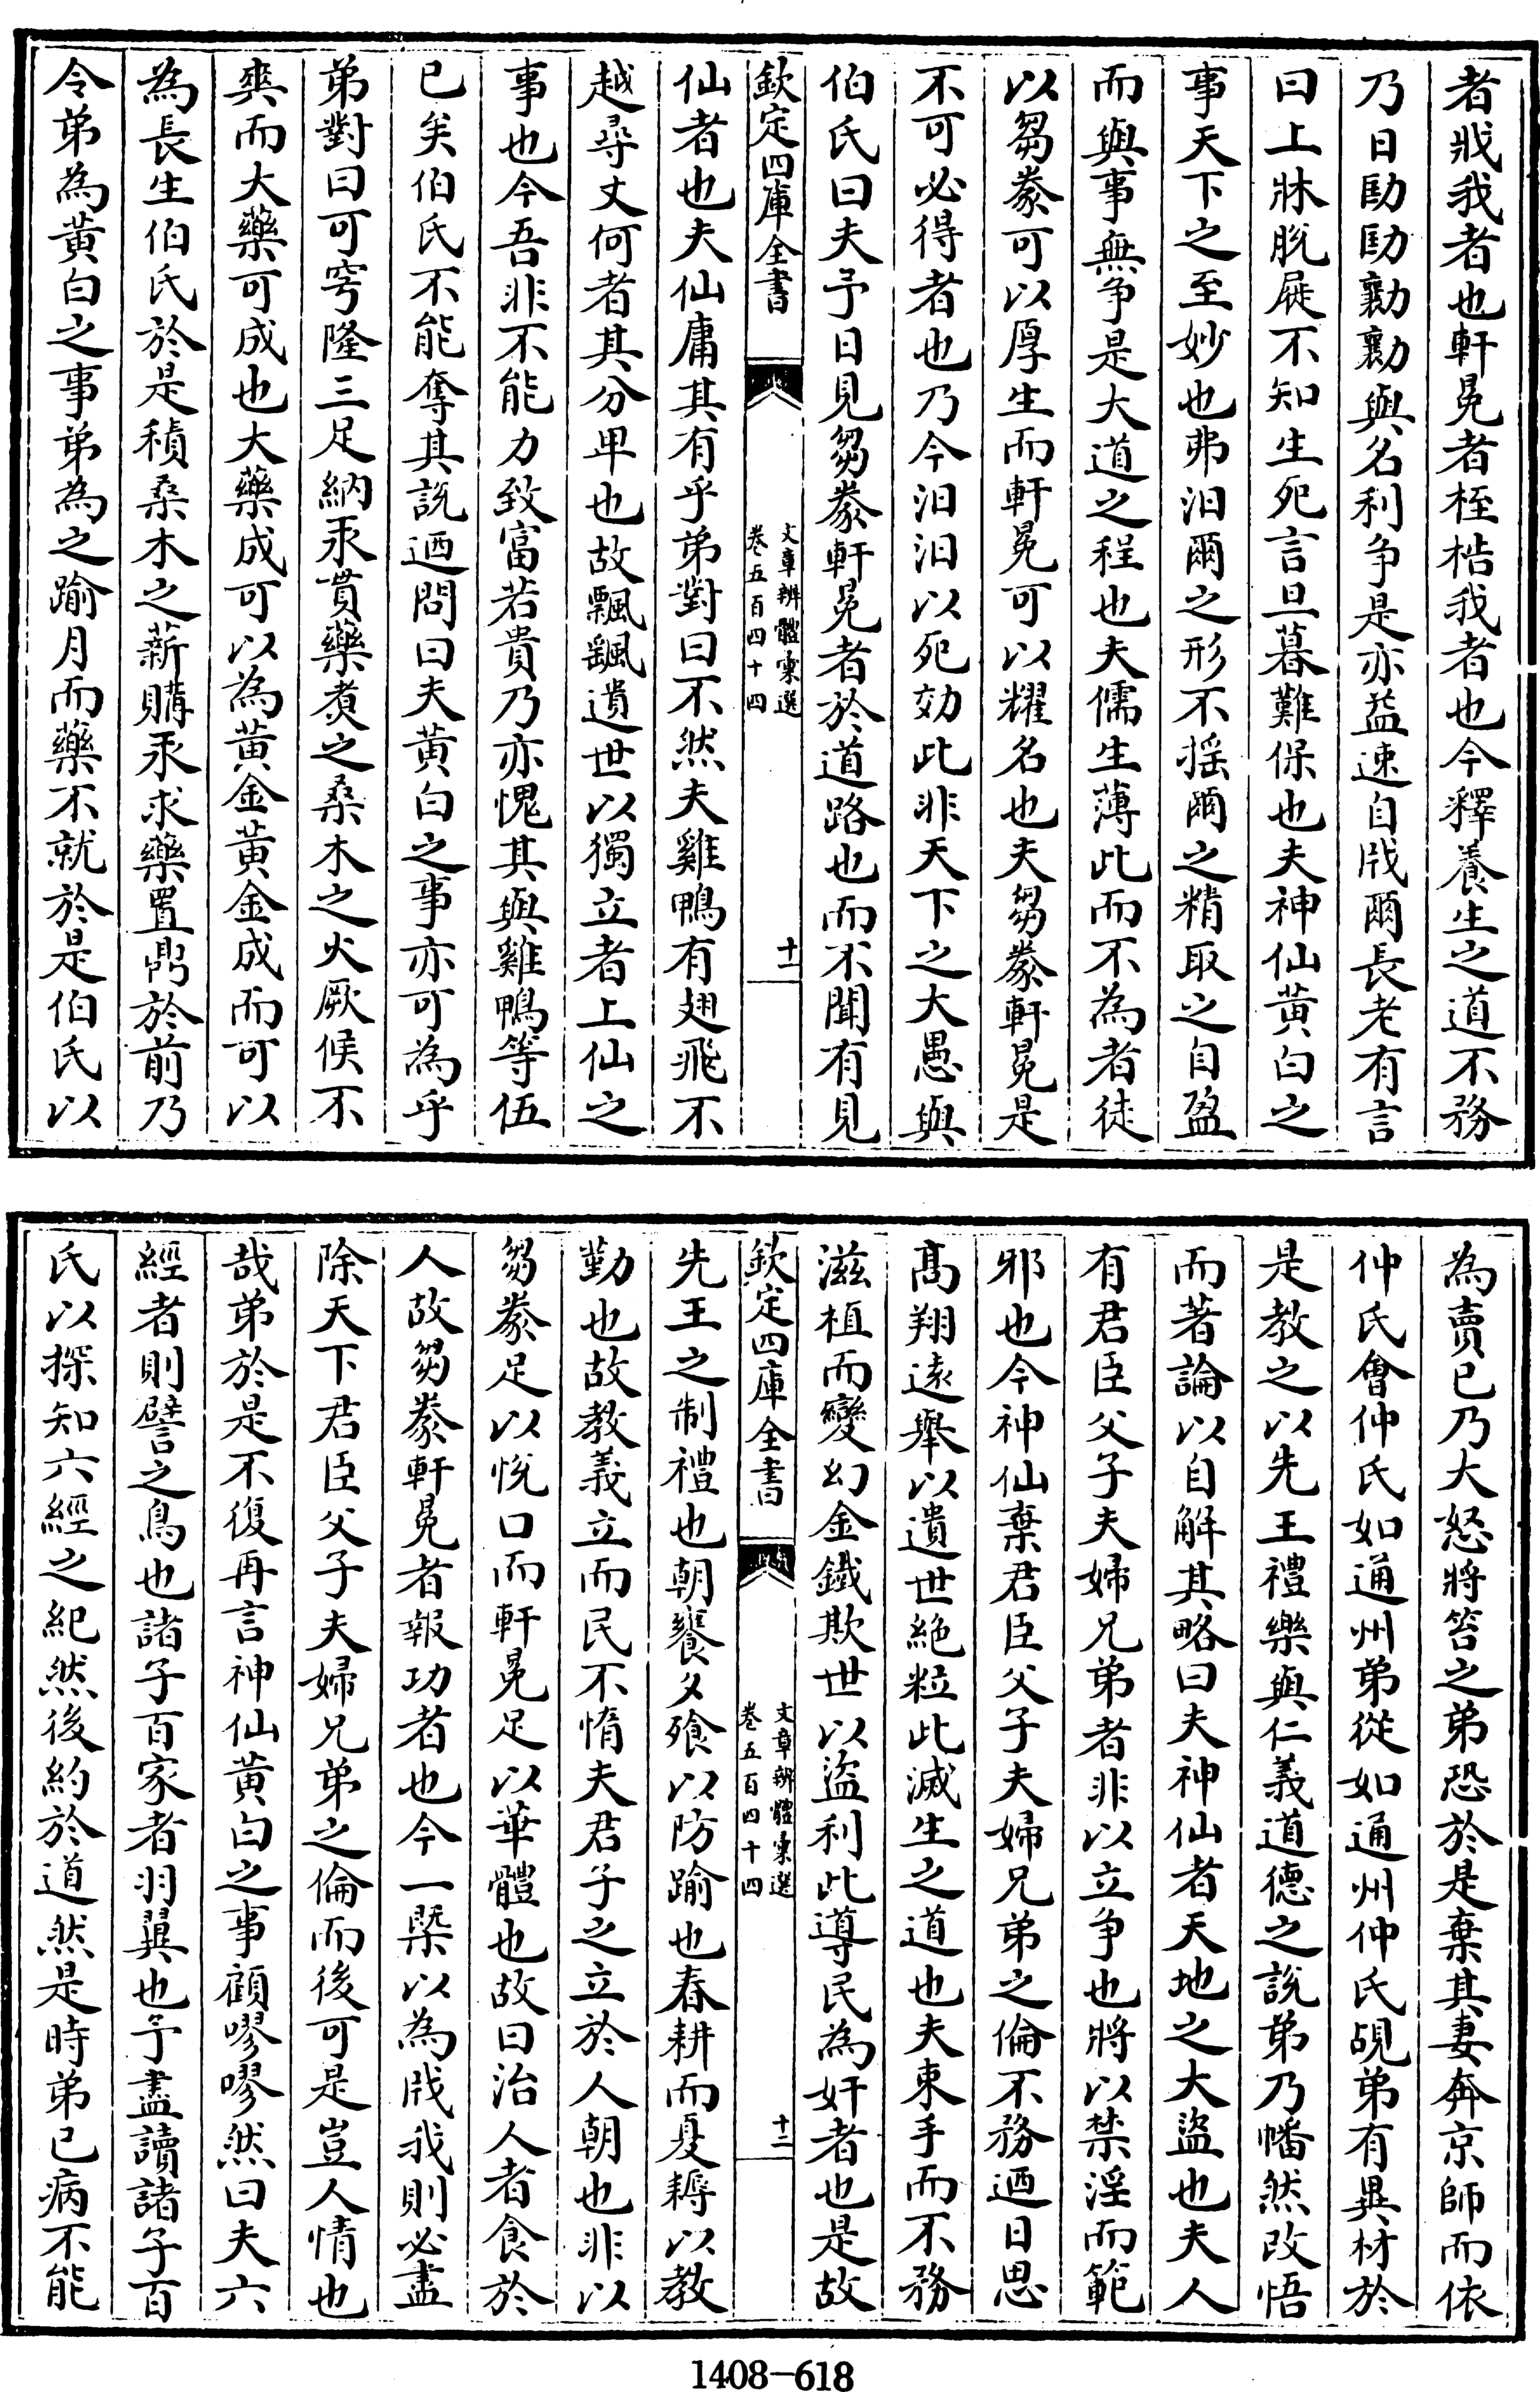 者戕我者也軒冕者桎梏我者也今釋養生之道不務
乃日劻劻勷勷與名利爭是亦益速自戕爾長老有言
曰上牀脫屣不知生死言旦暮難保也夫神仙黃白之
事天下之至妙也弗汩爾之形不揺爾之精取之自盈
而與事無爭是大道之程也夫儒生薄此而不為者徒
以芻豢可以厚生而軒冕可以耀名也夫芻豢軒冕是
不可必得者也乃今汩汩以死効此非天下之大愚與
伯氏曰夫予日見芻豢軒冕者於道路也而不聞有見
欽定四庫全書
文章辨體彙選
卷五百四十四
十一
仙者也夫仙庸其有乎弟對曰不然夫雞鴨有翅飛不
越尋丈何者其分卑也故飄飄遺世以獨立者上仙之
事也今吾非不能力致富若貴乃亦愧其與雞鴨等伍
已矣伯氏不能奪其說迺問曰夫黃白之事亦可為乎
弟對曰可穹隆三足納汞貫藥煑之桑木之火厥候不
爽而大藥可成也大藥成可以為黃金黃金成而可以
為長生伯氏於是積桑木之薪購汞求藥置鼎於前乃
令弟為黃白之事弟為之踰月而藥不就於是伯氏以
為賣已乃大怒將笞之弟恐於是棄其妻奔京師而依
仲氏會仲氏如通州弟從如通州仲氏覘弟有異材於
是教之以先王禮樂與仁義道德之說弟乃幡然改悟
而著論以自解其略曰夫神仙者天地之大盜也夫人
有君臣父子夫婦兄弟者非以立爭也將以禁淫而範
邪也今神仙棄君臣父子夫婦兄弟之倫不務迺日思
髙翔遠舉以遺世絶粒此滅生之道也夫束手而不務
滋植而變幻金鐵欺世以盜利此導民為奸者也是故
欽定四庫全書
文章辨體彙選
卷五百四十四
十二
先王之制禮也朝饔夕飱以防踰也春耕而夏耨以教
勤也故教義立而民不惰夫君子之立於人朝也非以
芻豢足以悅口而軒冕足以華體也故曰治人者食於
人故芻豢軒冕者報功者也今一槩以為戕我則必盡
除天下君臣父子夫婦兄弟之倫而後可是豈人情也
哉弟於是不復再言神仙黃白之事顧嘐嘐然曰夫六
經者則譬之鳥也諸子百家者羽翼也予盡讀諸子百
氏以探知六經之紀然後約於道然是時弟已病不能
1408-618